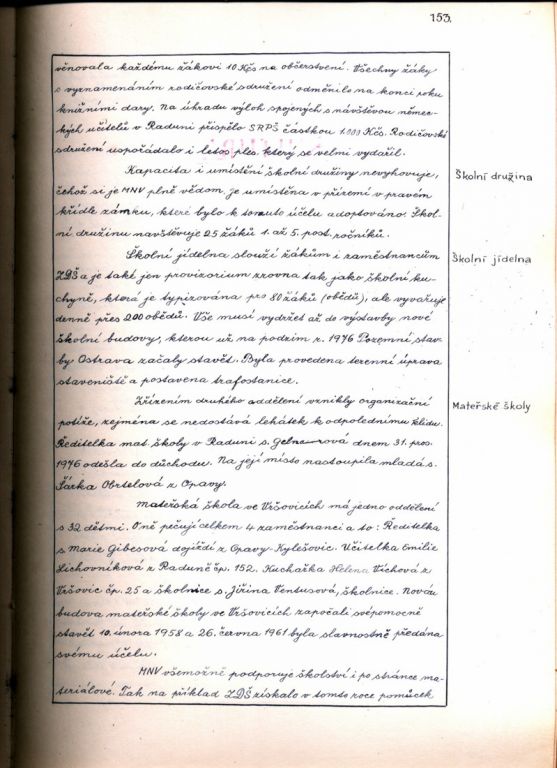 153.
věnovala každému žákovi 10 Kčs na občerstvení. Všechny žáky
s vyznamenáním rodičovské sdružení odměnilo na konci roku
knižními dary. Na úhradu výloh spojených s návštěvou němec-
kých učitelů v Raduni přispělo SRPŠ částkou 1.000 Kčs. Rodičovské
sdružení uspořádalo i letos ples, který se velmi vydařil.
Kapacita i umístění školní družiny nevyhovuje,
Školní družina
čehož si je MNV plně vědom. Je umístěna v přízemí v pravém
křídle zámku, které bylo k tomuto účelu adoptováno. Škol-
ní družinu navštěvuje 25 žáků 1. až 5. post. ročníků.
Školní jídelna slouží žákům i zaměstnancům
Školní jídelna
ZDŠ a je také jen provizorium zrovna tak jako školní ku-
chyně, která je typizována pro 80 žáků (obědů), ale vyvařuje
denně přes 200 obědů. Vše musí vydržet až do výstavby nové
školní budovy, kterou už na podzim r. 1976 Pozemní stav-
by Ostrava začaly stavět. Byla provedena terenní úprava
staveniště a postavena trafostanice.
Zřízením druhého oddělení vznikly organizační
Mateřské školy
potíže, zejména se nedostává lehátek k odpolednímu klidu.
Ředitelka mat. školy v Raduni s. Gelnarová dnem 31. pros.
1976 odešla do důchodu. Na její místo nastoupila mladá s.
Šárka Obrtelová z Opavy.
Mateřská škola ve Vršovicích má jedno oddělení
s 32 dětmi. O ně pečují celkem 4 zaměstnanci a to: Ředitelka
s. Marie Gibesová dojíždí z Opavy-Kylešovic. Učitelka Emilie
Lichovníková z Raduně čp. 152. Kuchařka Helena Víchová z
Vršovic čp. 25 a školnice s. Jiřina Ventusová, školnice. Novou
budova mateřské školy ve Vršovicích započali svépomocně
stavět 10. února 1958 a 26. června 1961 byla slavnostně předána
svému účelu.
MNV všemožně podporuje školství i po stránce ma-
teriálové. Tak na příklad ZDŠ získalo v tomto roce pomůcek